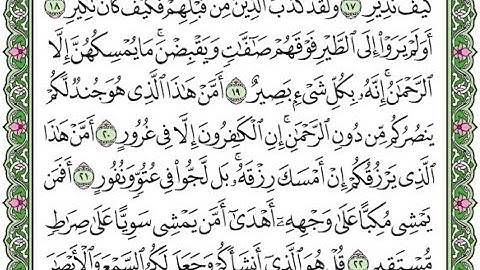 كَيْفَ نَذِيرِ ١٧ وَلَقَدْ كَذَّبَ ٱلَّذِينَ مِن قَبْلِهِمْ فَكَيْفَ كَانَ نَكِيرِ ١٨
أَوَلَمْ يَرَوْا۟ إِلَى ٱلطَّيْرِ فَوْقَهُمْ صَٰٓفَّٰتٍ وَيَقْبِضْنَ ۚ مَا يُمْسِكُهُنَّ إِلَّا
ٱلرَّحْمَٰنُ ۚ إِنَّهُۥ بِكُلِّ شَىْءٍۭ بَصِيرٌ ١٩ أَمَّنْ هَٰذَا ٱلَّذِى هُوَ جُندٌ لَّكُمْ
يَنصُرُكُم مِّن دُونِ ٱلرَّحْمَٰنِ ۚ إِنِ ٱلْكَٰفِرُونَ إِلَّا فِى غُرُورٍ ٢٠ أَمَّنْ هَٰذَا
ٱلَّذِى يَرْزُقُكُمْ إِنْ أَمْسَكَ رِزْقَهُۥ ۚ بَل لَّجُّوا۟ فِى عُتُوٍّ وَنُفُورٍ ٢١ أَفَمَن
يَمْشِى مُكِبًّا عَلَىٰ وَجْهِهِۦٓ أَهْدَىٰٓ أَمَّن يَمْشِى سَوِيًّا عَلَىٰ صِرَٰطٍ
مُّسْتَقِيمٍ ٢٢ قُلْ هُوَ ٱلَّذِىٓ أَنشَأَكُمْ وَجَعَلَ لَكُمُ ٱلسَّمْعَ وَٱلْأَبْصَٰرَ